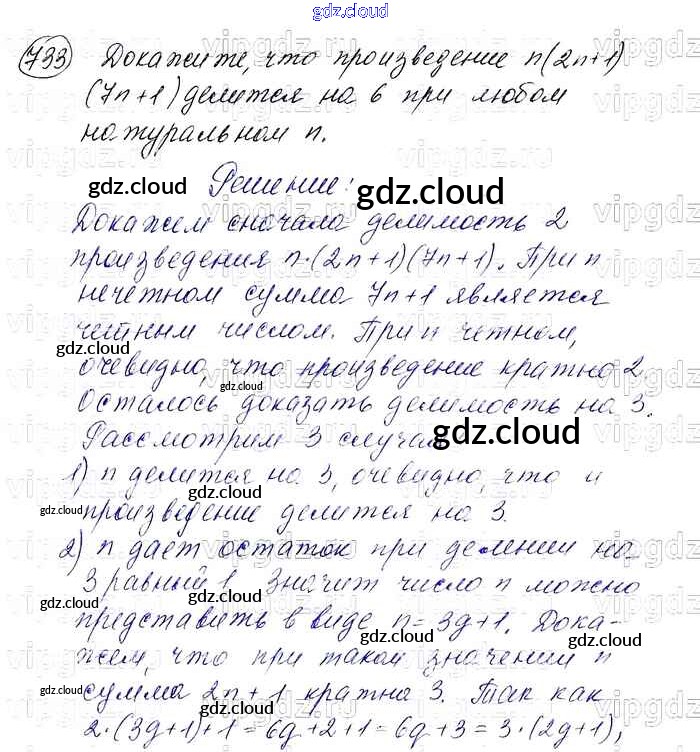 gdz.cloud
733 Докажите, что произведение n(2n+1)
(7n+1) делится на 6 при любом
натуральном n.
gdz.cloud Решение: gdz.cloud
Докажем сначала делимость 2
произведения n·(2n+1)(7n+1). При n
нечетном сумма 7n+1 является
четным числом. При n четном,
gdz.cloud
очевидно, что произведение кратно 2.
gdz.cloud
Осталось доказать делимость на 3.
Рассмотрим 3 случая
gdz.cloud
1) n делится на 3, очевидно, что и
gdz.cloud gdz.cloud
произведение делится на 3.
gdz.cloud
2) n дает остаток при делении на
3 равный 1. Значит число n можно
gdz.cloud
представить в виде n=3q+1. Дока-
gdz.cloud gdz.cloud
жем, что при таком значении n
gdz.cloud
сумма 2n+1 кратна 3. Так как
gdz.cloud
2·(3q+1)+1=6q+2+1=6q+3=3·(2q+1),
gdz.cloud